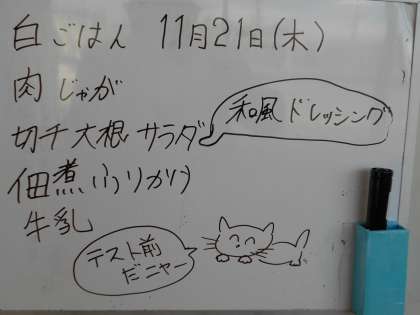 白ごはん 11月21日(木)
肉じゃが
切干大根サラダ
和風ドレッシング
佃煮ふりかけ
牛乳
テスト前
だニャー